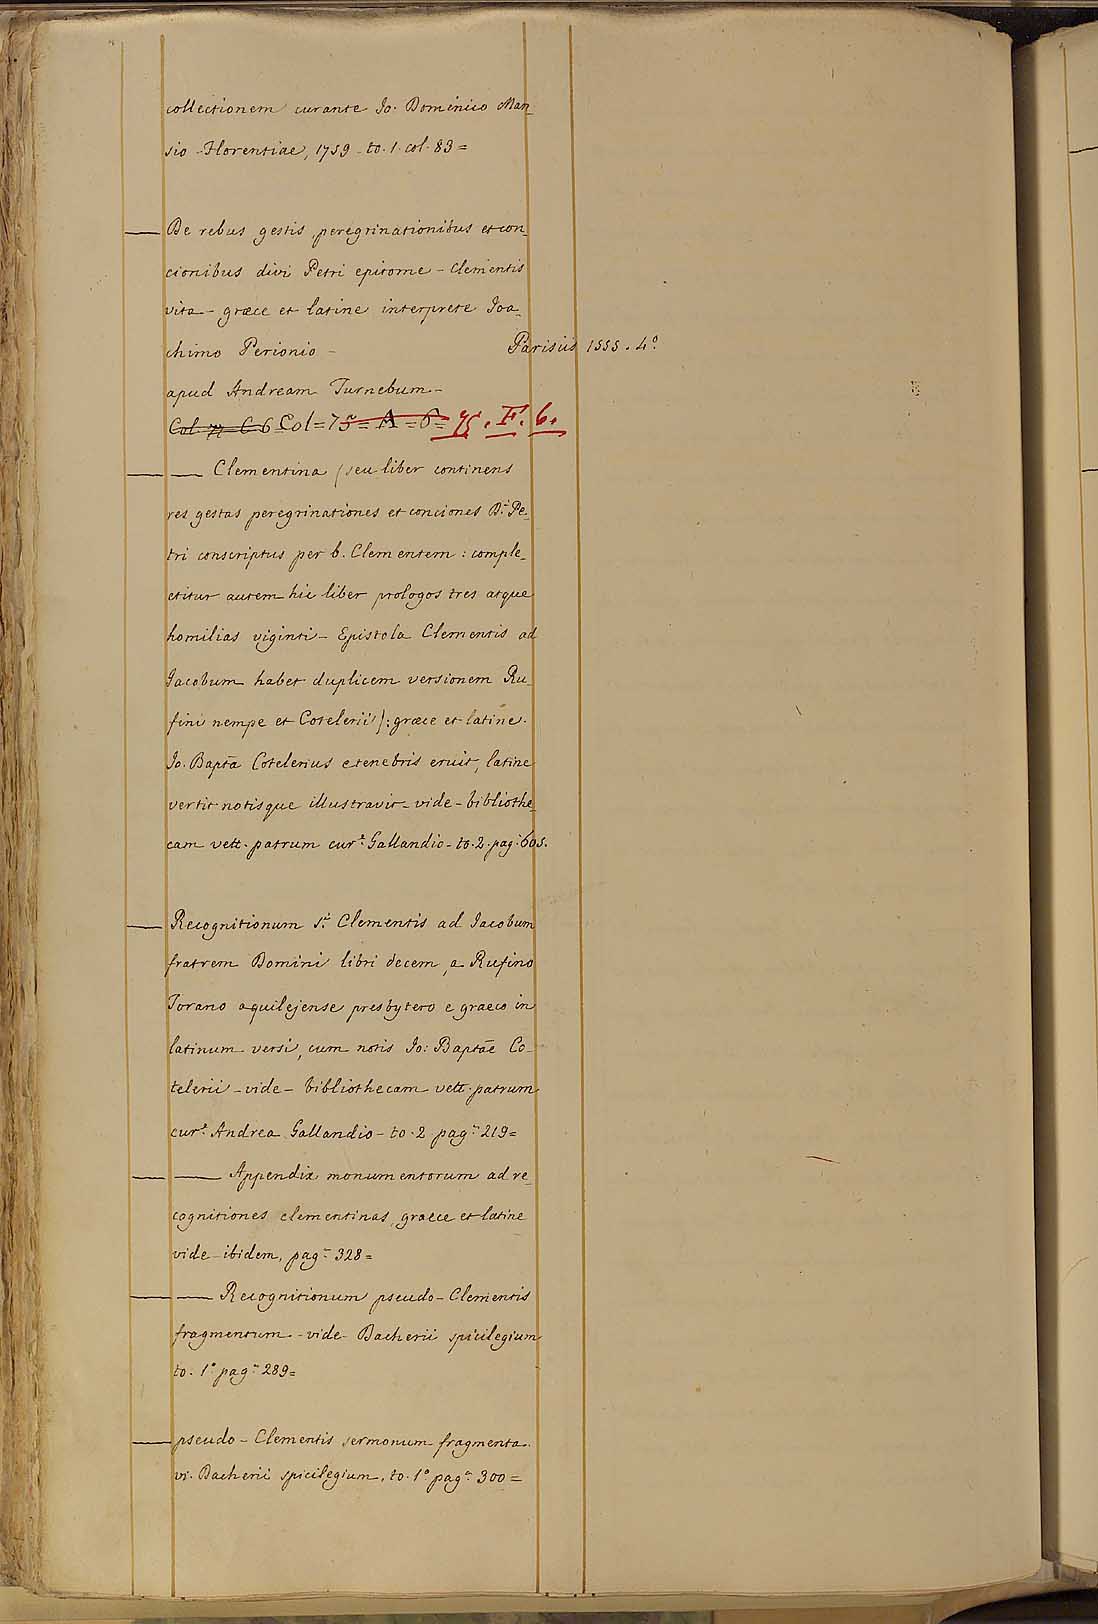 collectionem curante Jo. Dominico Man_
sio - Florentiae, 1759 - to. 1. col. 83 =
— De rebus gestis, peregrinationibus et con_
cionibus divi Petri epitome - Clementis
vita - græce et latine interprete Joa_
chimo Perionio - Parisiis 1555. 4.º
apud Andream Turnebum -
Col. 77 = C 6 Col = 75 = A = 6 = 75. F. 6.
— — Clementina (seu liber continens
res gestas peregrinationes et conciones D.i Pe_
tri conscriptus per b. Clementem : comple_
ctitur autem hic liber prologos tres atque
homilias viginti - Epistola Clementis ad
Jacobum habet duplicem versionem Ru_
fini nempe et Cotelerii) : græce et latine.
Jo. Bapta Cotelerius e tenebris eruit, latine
vertit notisque illustravit - vide - bibliothe_
cam vett. patrum cur.e Gallandio - to. 2. pag. 605.
— Recognitionum S.i Clementis ad Jacobum
fratrem Domini libri decem, a Rufino
Torano aquilejense presbytero e graeco in
latinum versi, cum notis Jo: Baptæ Co_
telerii - vide - bibliothecam vett. patrum
cur.e Andrea Gallandio - to. 2 pag. 219 =
— — Appendix monumentorum ad re_
cognitiones clementinas, graece et latine
vide ibidem, pag. 328 =
— — Recognitionum pseudo - Clementis
fragmentum - vide - Dacherii spicilegium
to. 1.º pag. 289 =
— pseudo - Clementis sermonum fragmenta.
vi. Dacherii spicilegium, to. 1.º pag. 300 =